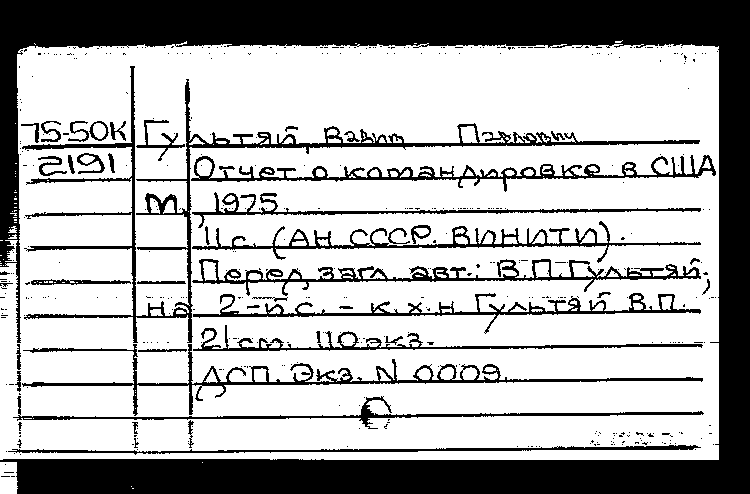 75-50К Гультяй, Вадим Павлович
2191 Отчет о командировке в США
М., 1975.
11 с. (АН СССР. ВИНИТИ).
Перед загл. авт.: В.П. Гультяй;
на 2-й с. - к.х.н. Гультяй В.П.
21 см. 110 экз.
ДСП. Экз. N 0009.